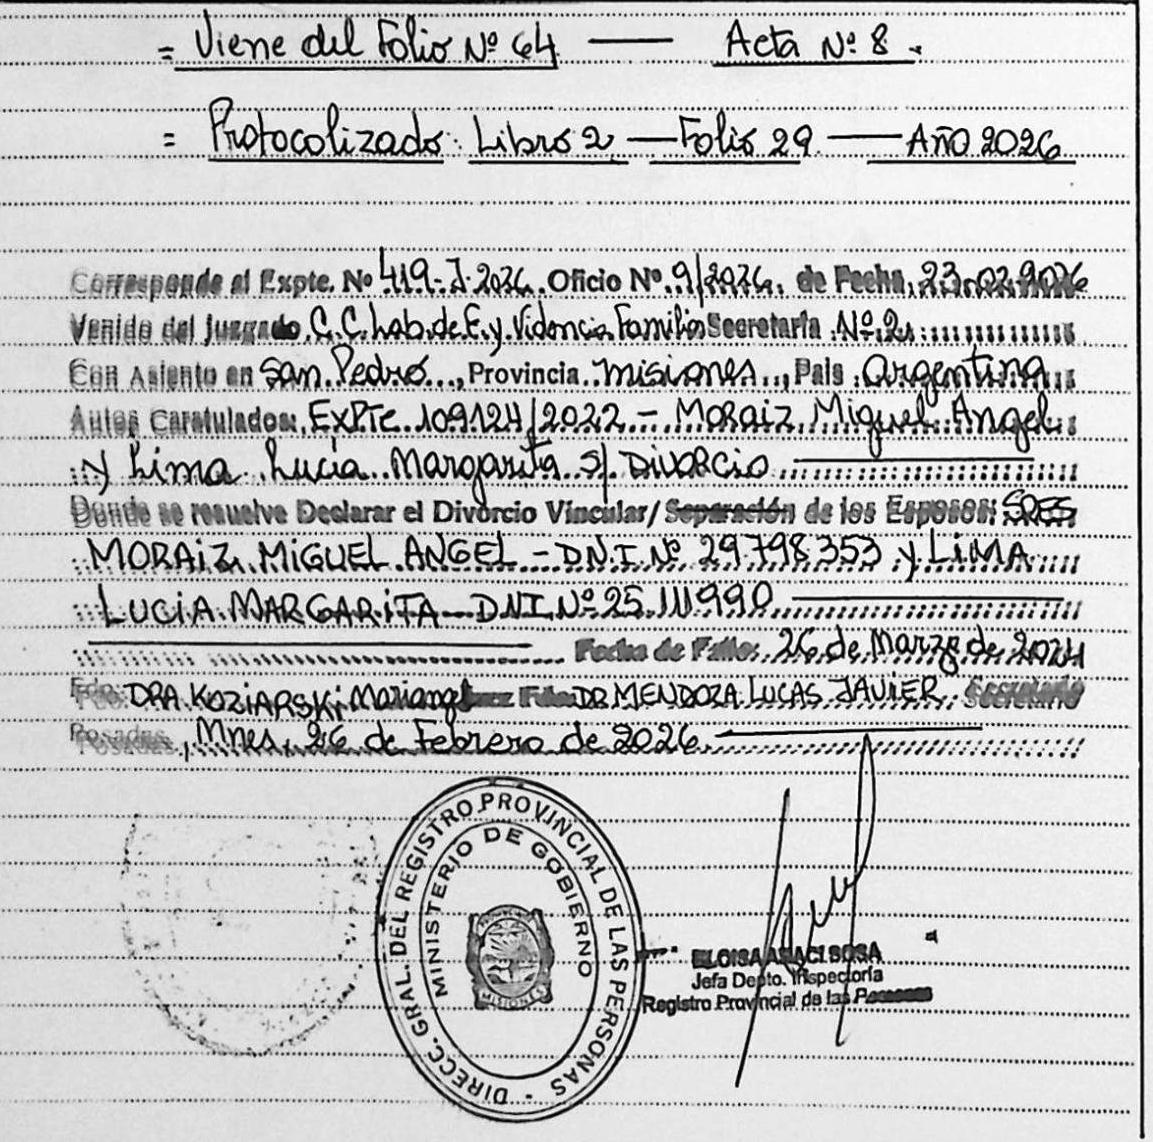 = Viene del Folio Nº 64 — Acta Nº 8.
= Protocolizado: Libro 2 — Folio 29 — Año 2026
Corresponde al Expte. Nº 419-J-2026. Oficio Nº 9/2026. de Fecha. 23.02.2026
Venido del Juzgado. C.C. Lab. de F. y. Violencia Familiar Secretaría Nº 2
Con Asiento en San Pedro..., Provincia. Misiones..., País. Argentina
Autos Caratulados: EXPTE 109124/2022 - MORAIZ Miguel Angel
y Lima Lucia Margarita S/ DIVORCIO
Donde se resuelve Declarar el Divorcio Vincular/ Separación de los Esposos: SRES
MORAIZ MIGUEL ANGEL - D.N.I. Nº 29.798.353 y LIMA
LUCIA MARGARITA - DNI Nº 25.111.990
Fecha de Fallo: 26 de Marzo de 2024
Fdo. DRA KOZIARSKI Mariangel Juez Fdo. DR MENDOZA LUCAS JAVIER. Secretario
Posadas, Mnes, 26 de Febrero de 2026.
DIRECC. GRAL. DEL REGISTRO PROVINCIAL DE LAS PERSONAS -
MINISTERIO DE GOBIERNO
MISIONES
ELOISA ARACI SOSA
Jefa Depto. Inspectoría
Registro Provincial de las Personas